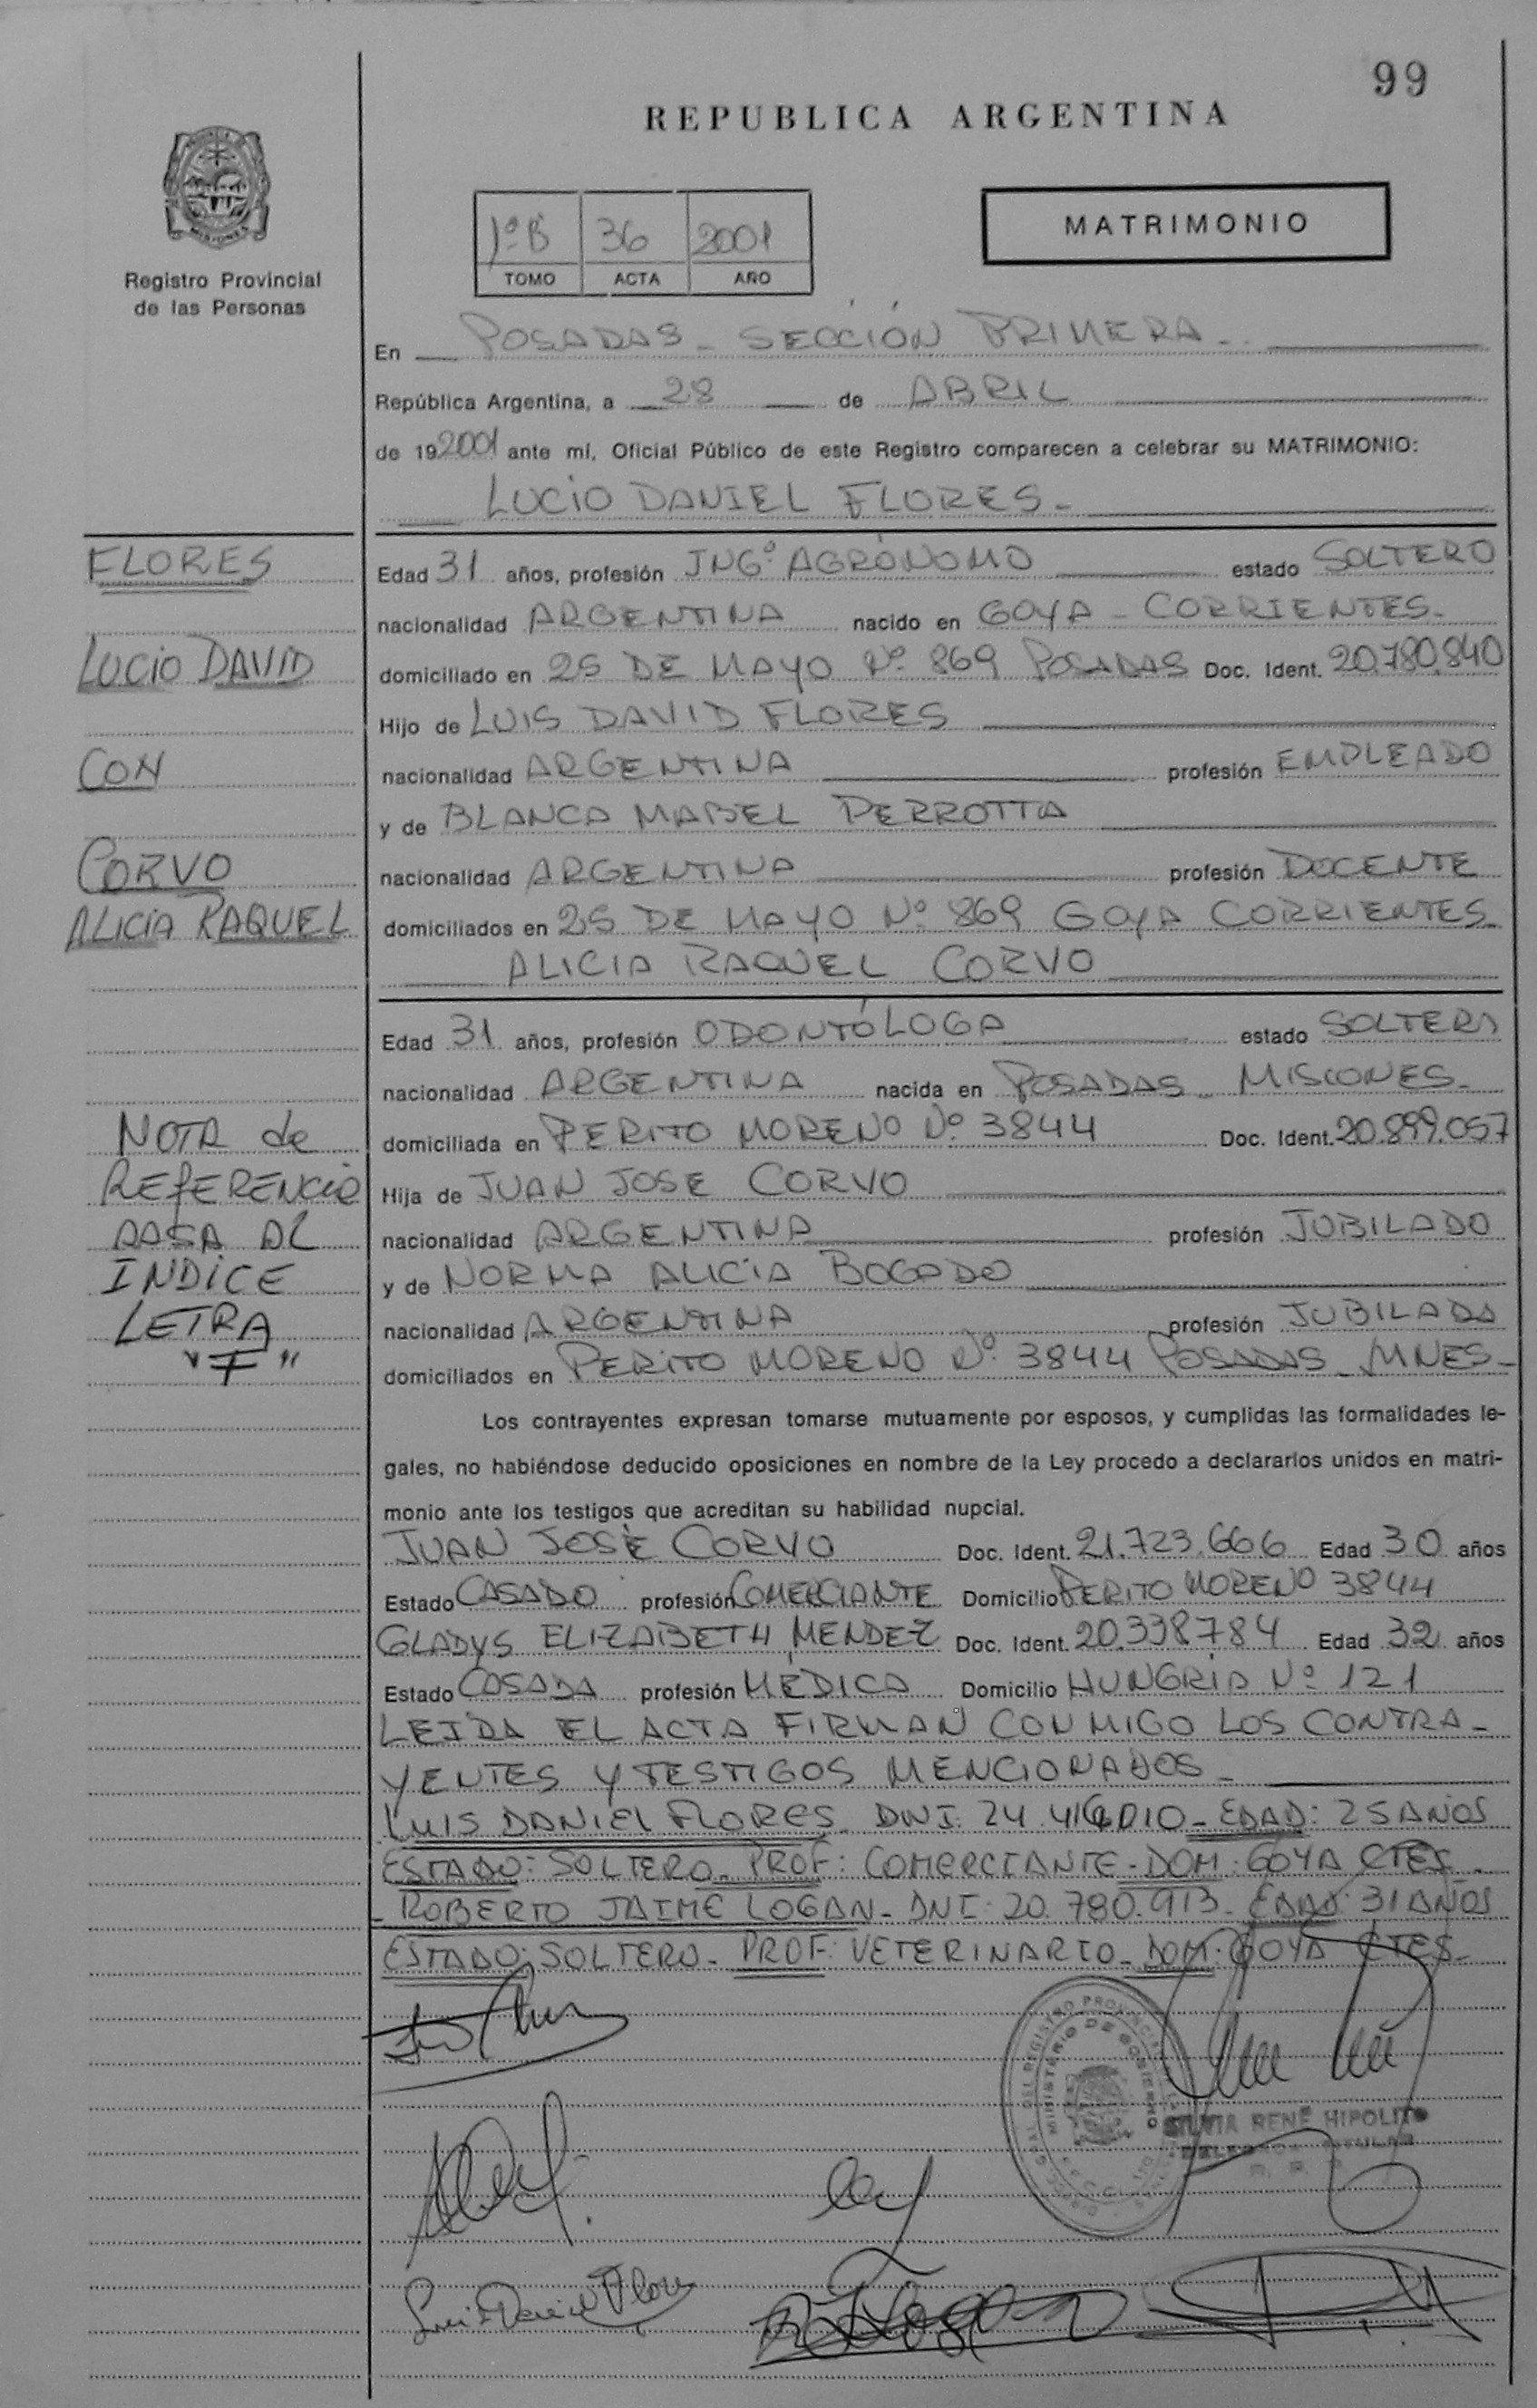 99
REPUBLICA ARGENTINA
MISIONES
Registro Provincial
de las Personas
1º B 36 2001
TOMO ACTA AÑO
MATRIMONIO
En POSADAS - SECCIÓN PRIMERA -
República Argentina, a 28 de ABRIL
de 19 2001 ante mí, Oficial Público de este Registro comparecen a celebrar su MATRIMONIO:
LUCIO DANIEL FLORES -
FLORES
LUCIO DAVID
CON
CORVO
ALICIA RAQUEL
NOTA de
REFERENCIA
PASA AL
INDICE
LETRA
"F"
Edad 31 años, profesión INGº AGRÓNOMO estado SOLTERO
nacionalidad ARGENTINA nacido en GOYA - CORRIENTES -
domiciliado en 25 DE MAYO Nº 869 POSADAS Doc. Ident. 20.780.840
Hijo de LUIS DAVID FLORES
nacionalidad ARGENTINA profesión EMPLEADO
y de BLANCA MABEL PERROTTA
nacionalidad ARGENTINA profesión DOCENTE
domiciliados en 25 DE MAYO Nº 869 GOYA CORRIENTES -
ALICIA RAQUEL CORVO
Edad 31 años, profesión ODONTÓLOGA estado SOLTERA
nacionalidad ARGENTINA nacida en POSADAS - MISIONES -
domiciliada en PERITO MORENO Nº 3844 Doc. Ident. 20.899.057
Hija de JUAN JOSE CORVO
nacionalidad ARGENTINA profesión JUBILADO
y de NORMA ALICIA BOGADO
nacionalidad ARGENTINA profesión JUBILADA
domiciliados en PERITO MORENO Nº 3844 POSADAS - MNES -
Los contrayentes expresan tomarse mutuamente por esposos, y cumplidas las formalidades le-
gales, no habiéndose deducido oposiciones en nombre de la Ley procedo a declararlos unidos en matri-
monio ante los testigos que acreditan su habilidad nupcial.
JUAN JOSÉ CORVO Doc. Ident. 21.723.666 Edad 30 años
Estado CASADO profesión COMERCIANTE Domicilio PERITO MORENO 3844
GLADYS ELIZABETH MENDEZ Doc. Ident. 20.338784 Edad 32 años
Estado CASADA profesión MÉDICA Domicilio HUNGRIA Nº 121
LEIDA EL ACTA FIRMAN CONMIGO LOS CONTRA-
YENTES Y TESTIGOS MENCIONADOS -
LUIS DANIEL FLORES - DNI: 24. - EDAD: 25 AÑOS
ESTADO: SOLTERO - PROF: COMERCIANTE - DOM: GOYA CTES -
- ROBERTO JAIME LOGAN - DNI: 20.780.913 - EDAD: 31 AÑOS
ESTADO: SOLTERO - PROF: VETERINARIO - DOM: GOYA CTES -
MINISTERIO DE GOBIERNO
SILVIA RENÉ HIPOLITO
Luis David Flores